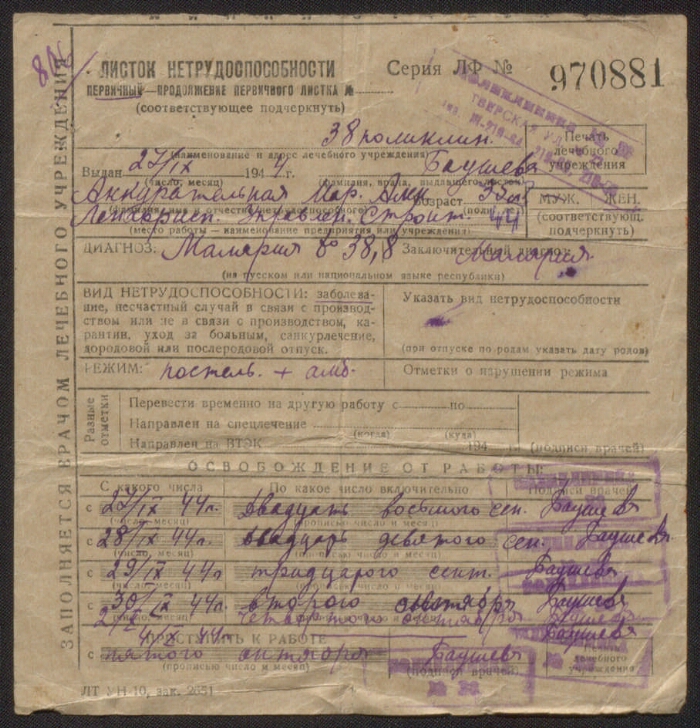 80
ЛИСТОК НЕТРУДОСПОСОБНОСТИ Серия ЛФ № 970881
ПЕРВИЧНЫЙ—ПРОДОЛЖЕНИЕ ПЕРВИЧНОГО ЛИСТКА №
(соответствующее подчеркнуть)
38 поликлин.
(наименование и адрес лечебного учреждения)
Печать лечебного учреждения
Выдан 27/IX 1944 г. Баушева
(число, месяц) (фамилия, врача, выдавшего листок)
Мар. Возраст
МУЖ. ЖЕН.
(соответствующ. подчеркнуть)
Управлен. Строит.
(место работы — наименование предприятия или учреждения)
ДИАГНОЗ: Малярия 38,8 Заключительный диагноз: Малярия
(на русском или национальном языке республики)
ВИД НЕТРУДОСПОСОБНОСТИ: заболева-
ние, несчастный случай в связи с производ-
ством или не в связи с производством, ка-
рантин, уход за больным, санкурлечение,
дородовой или послеродовой отпуск.
Указать вид нетрудоспособности
(при отпуске по родам указать дату родов)
РЕЖИМ: постель. + амб.
Отметки о нарушении режима
Разные отметки
Перевести временно на другую работу с по
Направлен на спецлечение
(когда) (куда)
Направлен на ВТЭК 194 г. (подписи врачей)
ОСВОБОЖДЕНИЕ ОТ РАБОТЫ
С какого числа По какое число включительно Подписи врачей
с 27/IX 44 г. двадцать восьмого сен. Баушева
(число, месяц) (прописью число и месяц)
с 28/IX 44 г. двадцать девятого сен. Баушева
(число, месяц) (прописью число и месяц)
с 29/IX 44 г. тридцатого сент. Баушева
(число, месяц) (прописью число и месяц)
с 30/IX 44 г. второго октября Баушева
четвертого октября Баушева
ПРИСТУПИТЬ К РАБОТЕ
с пятого октября Баушева
(прописью число и месяц) (подписи врачей)
Печать лечебного учреждения
ЛТ УН-10, зак. 2651
ЗАПОЛНЯЕТСЯ ВРАЧОМ ЛЕЧЕБНОГО УЧРЕЖДЕНИЯ